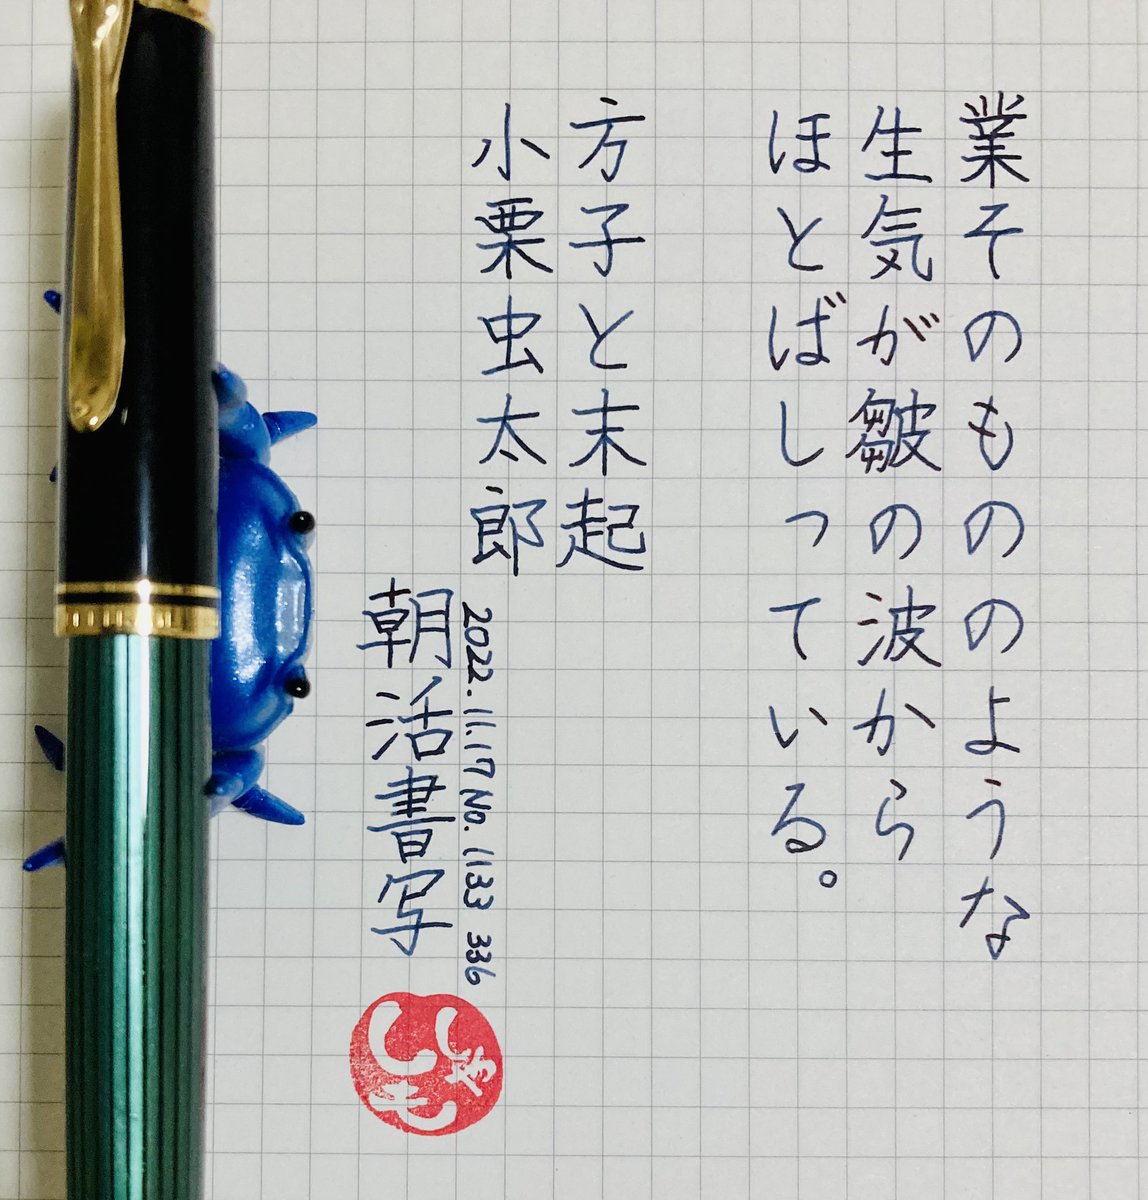 業そのもののような
生気が皺の波から
ほとばしっている。
方子と末起
小栗虫太郎
2022.11.17 No.1133 336
朝活書写